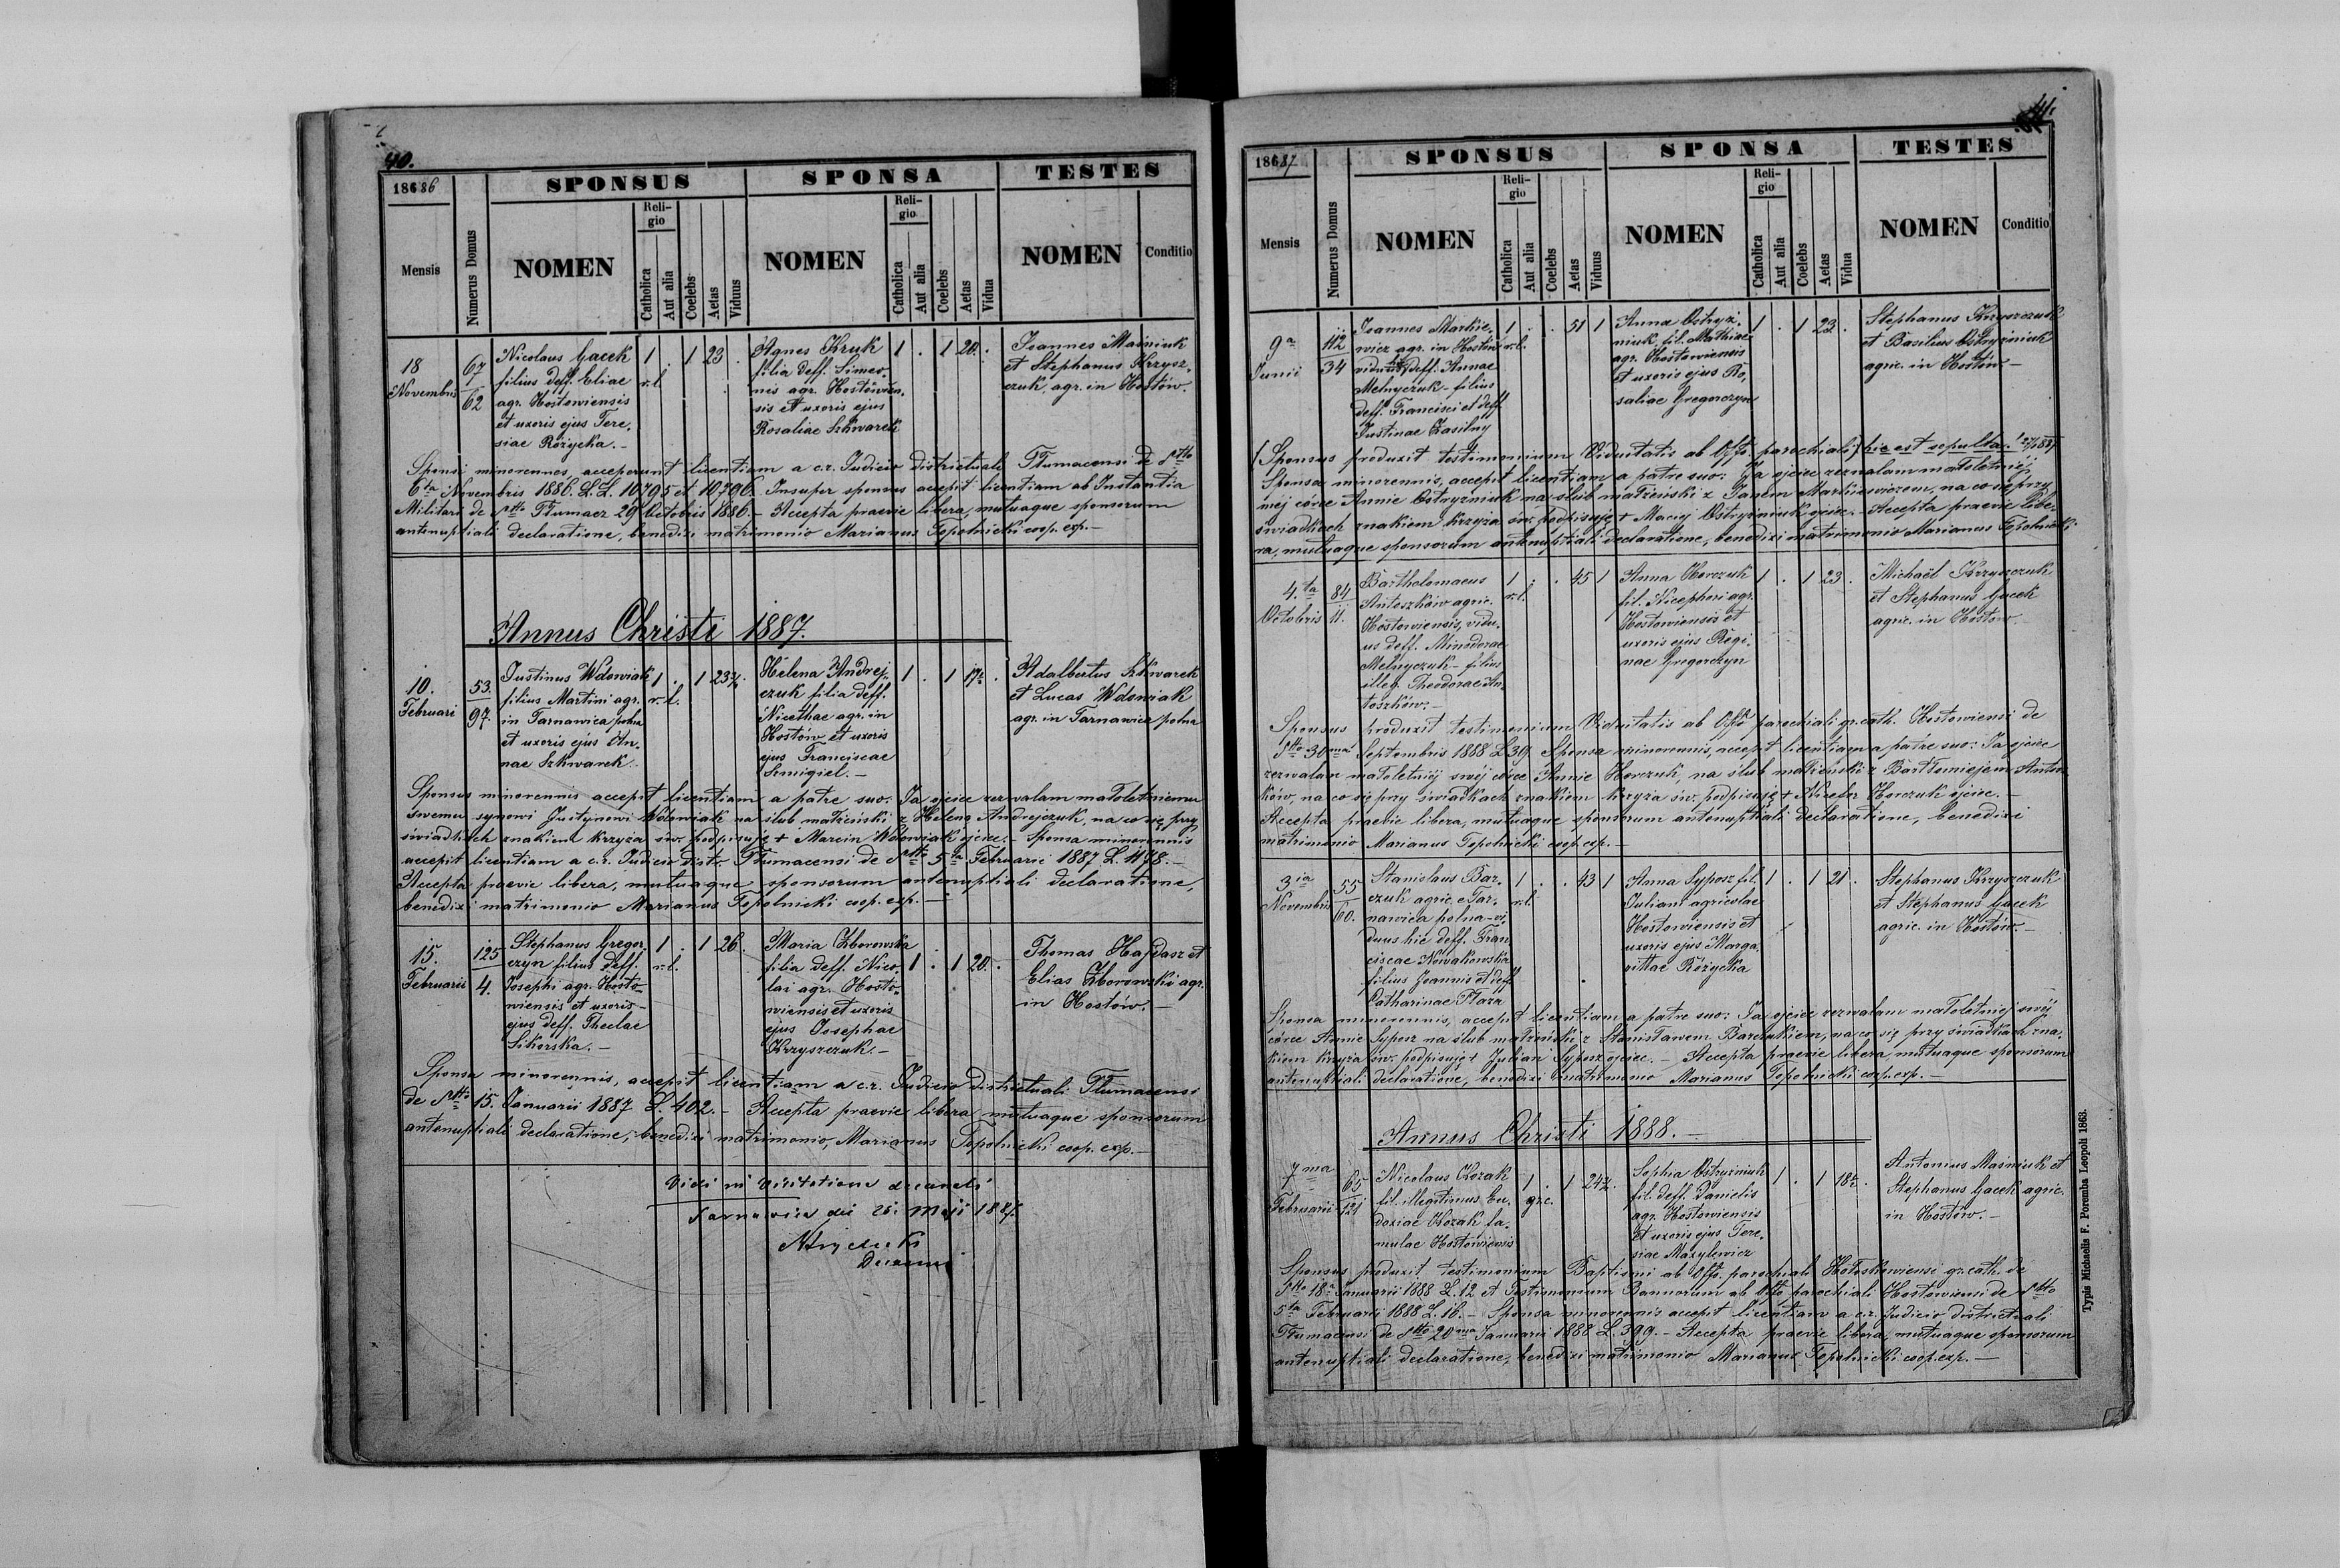 40.
18686
SPONSUS
SPONSA
TESTES
Mensis
Numerus Domus
NOMEN
Religio
Catholica
Aut alia
Coelebs
Aetas
Viduus
NOMEN
Religio
Catholica
Aut alia
Coelebs
Aetas
Vidua
NOMEN
Conditio
18 Novembris
67
62
Nicolaus Gacek
filius deff. Eliae
agr. Hostowiensis
et uxoris ejus Tere,
siae Różycka. -
1 r.l. . 1 23 .
Agnes Kruk
filia deff. Simeo,
nis agr. Hostowien,
sis et uxoris ejus
Rosaliae Szkwarek
1 . 1 20. .
Joannes Maśniuk
et Stephanus Krzysz,
czuk, agr. in Hostów. -
Sponsi minorennes, acceperunt licentiam a c.r. Judicio districtuali Tłumacensi de dtto
6ta Novembris 1886. L.L. 10795 et 10796. Insuper sponsus accepit licentiam ab Instantia
Militari de dtto Tłumacz 29 Octobris 1886. - Accepta praevie libera, mutuaque sponsorum
antenuptiali declaratione, benedixi matrimonio Marianus Topolnicki coop. exp. -
Annus Christi 1887.
10. Februari
53.
97.
Justinus Wdowiak
filius Martini agr.
in Tarnawica polna
et uxoris ejus An,
nae Szkwarek. -
1 r.l. . 1 23½ .
Helena Andrej,
czuk filia deff.
Nicethae agr. in
Hostów et uxoris
ejus Franciscae
Smigiel. -
1 . 1 17½ .
Adalbertus Szkwarek
et Lucas Wdowiak
agr. in Tarnawica polna
Sponsus minorennis accepit licentiam a patre suo: Ja ojciec zezwalam małoletniemu
swemu synowi Justynowi Wdowiak na ślub małżeński z Heleną Andrejczuk, na co się przy
świadkach znakiem krzyża św. podpisuję + Marcin Wdowiak ojciec. - Sponsa minorennis
accepit licentiam a c.r. Judicio distr. Tłumacensi de dtto 5ta Februarii 1887 L. 1178. -
Accepta praevie libera, mutuaque sponsorum antenuptiali declaratione,
benedixi matrimonio Marianus Topolnicki coop. exp. -
15. Februarii
125
4.
Stephanus Gregor,
czyn filius deff.
Josephi agr. Hosto,
wiensis et uxoris
ejus deff. Theclae
Sikorska. -
1 r.l. . 1 26. .
Maria Zborowska
filia deff. Nico,
lai agr. Hosto,
wiensis et uxoris
ejus Josephae
Krzyszczuk. -
1 . 1 20. .
Thomas Hajdasz et
Elias Zborowski agr.
in Hostów. -
Sponsa minorennis, accepit licentiam a c.r. Judicio districtuali Tłumacensi
de dtto 15. Januarii 1887 L. 402. - Accepta praevie libera mutuaque sponsorum
antenuptiali declaratione, benedixi matrimonio, Marianus Topolnicki coop. exp. -
Vidi in visitatione decanali
Tarnawica die 25. Maji 1887.
Decanus
41.
18687
SPONSUS
SPONSA
TESTES
Mensis
Numerus Domus
NOMEN
Religio
Catholica
Aut alia
Coelebs
Aetas
Viduus
NOMEN
Religio
Catholica
Aut alia
Coelebs
Aetas
Vidua
NOMEN
Conditio
9a Junii
112
34
Joannes Markie,
wicz agr. in Hostów
viduus deff. Annae
Melnyczuk - filius
deff. Francisci et deff.
Justinae Zasilny
1 r.l. . . 51 1
Anna Ostryż,
niuk fil. Mathiae
agr. Hostowiensis
et uxoris ejus Ro,
saliae Gregorczyn
1 . 1 23 .
Stephanus Krzyszczuk
et Basilius Ostryżniuk
agric. in Hostów. -
Sponsus produxit testimonium Viduitatis ab Offo. parochiali hic est sepulta!
Sponsa minorennis, accepit licentiam a patre suo: Ja ojciec zezwalam małoletniej
mej córce Annie Ostryżniuk na ślub małżeński z Janem Markiewiczem, na co się przy
świadkach znakiem krzyża św. podpisuję + Maciej Ostryżniuk ojciec. - Accepta praevie libe,
ra, mutuaque sponsorum antenuptiali declaratione, benedixi matrimonio Marianus Topolnicki
4.ta Octobris
84
11.
Bartholomaeus
Antoszków agric.
Hostowiensis, vidu,
us deff. Minodorae
Melnyczuk - filius
illeg. Theodorae An,
toszków. -
1 r.l. . . 45 1
Anna Horczuk
fil. Nicephori agr.
Hostowiensis et
uxoris ejus Regi,
nae Gregorczyn
1 . 1 23 .
Michaël Krzyszczuk
et Stephanus Gacek
agric. in Hostów. -
Sponsus produxit testimonium Viduitatis ab Offo. parochiali gr. cath. Hostowiensi de
dtto 30ma Septembris 1888 L 39. Sponsa minorennis, accepit licentiam a patre suo: Ja ojciec
zezwalam małoletniej swej córce Annie Horczuk, na ślub małżeński z Bartłomiejem Antosz,
ków, na co się przy świadkach znakiem krzyża św. podpisuję + Nicefor Horczuk ojciec. -
Accepta praevie libera, mutuaque sponsorum antenuptiali declaratione, benedixi
matrimonio Marianus Topolnicki coop. exp. -
3ia Novembris
55
60.
Stanislaus Bar,
czuk agric. e Tar,
nawica polna - vi,
duus hic deff. Fran,
ciscae Nowakowska
filius Joannis et deff.
Catharinae Płaza
1 r.l. . . 43 1
Anna Syposz fil.
Juliani agricolae
Hostowiensis et
uxoris ejus Marga,
rittae Różycka
1 . 1 21 .
Stephanus Krzyszczuk
et Stephanus Gacek
agric. in Hostów. -
Sponsa minorennis, accepit licentiam a patre suo: Ja ojciec zezwalam małoletniej swej
córce Annie Syposz na ślub małżeński z Stanisławem Barczukiem, na co się przy świadkach zna,
kiem krzyża św. podpisuję + Julian Syposz ojciec. - Accepta praevie libera, mutuaque sponsorum
antenuptiali declaratione, benedixi matrimonio Marianus Topolnicki coop. exp. -
Annus Christi 1888. -
7ma Februarii
65
121
Nicolaus Kozak
fil. illegitimus Eu,
doxiae Kozak fa,
mulae Hostowiensis
1 gr.c. . 1 24½ .
Sophia Ostryżniuk
fil. deff. Danielis
agr. Hostowiensis
et uxoris ejus Tere,
siae Mazylewicz
1 . 1 18½ .
Antonius Maśniuk et
Stephanus Gacek agric.
in Hostów. -
Sponsus produxit testimonium Baptismi ab Offo. parochiali Hołoskowiensi gr. cath. de
dtto 18a Januarii 1888 L. 12 et Testimonium Bannorum ab Offo parochiali Hostowiensi de dtto
5ta Februarii 1888 L. 16. - Sponsa minorennis accepit licentiam a c.r. Judicio districtuali
Tłumacensi de dtto 20ma Januarii 1888 L. 399. - Accepta praevie libera, mutuaque sponsorum
antenuptiali declaratione, benedixi matrimonio Marianus Topolnicki coop. exp. -
Typis Michaelis F. Poremba Leopoli 1863.